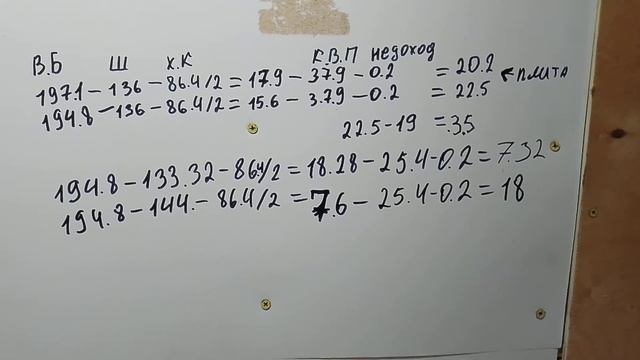 В.Б Ш Х.К К.В.П недоход
197.1 - 136 - 86.4/2 = 17.9 - 37.9 - 0.2 = 20.2 ← плита
194.8 - 136 - 86.4/2 = 15.6 - 37.9 - 0.2 = 22.5
22.5 - 19 = 3.5
194.8 - 133.32 - 86.4/2 = 18.28 - 25.4 - 0.2 = 7.32
194.8 - 144. - 86.4/2 = 7.6 - 25.4 - 0.2 = 18